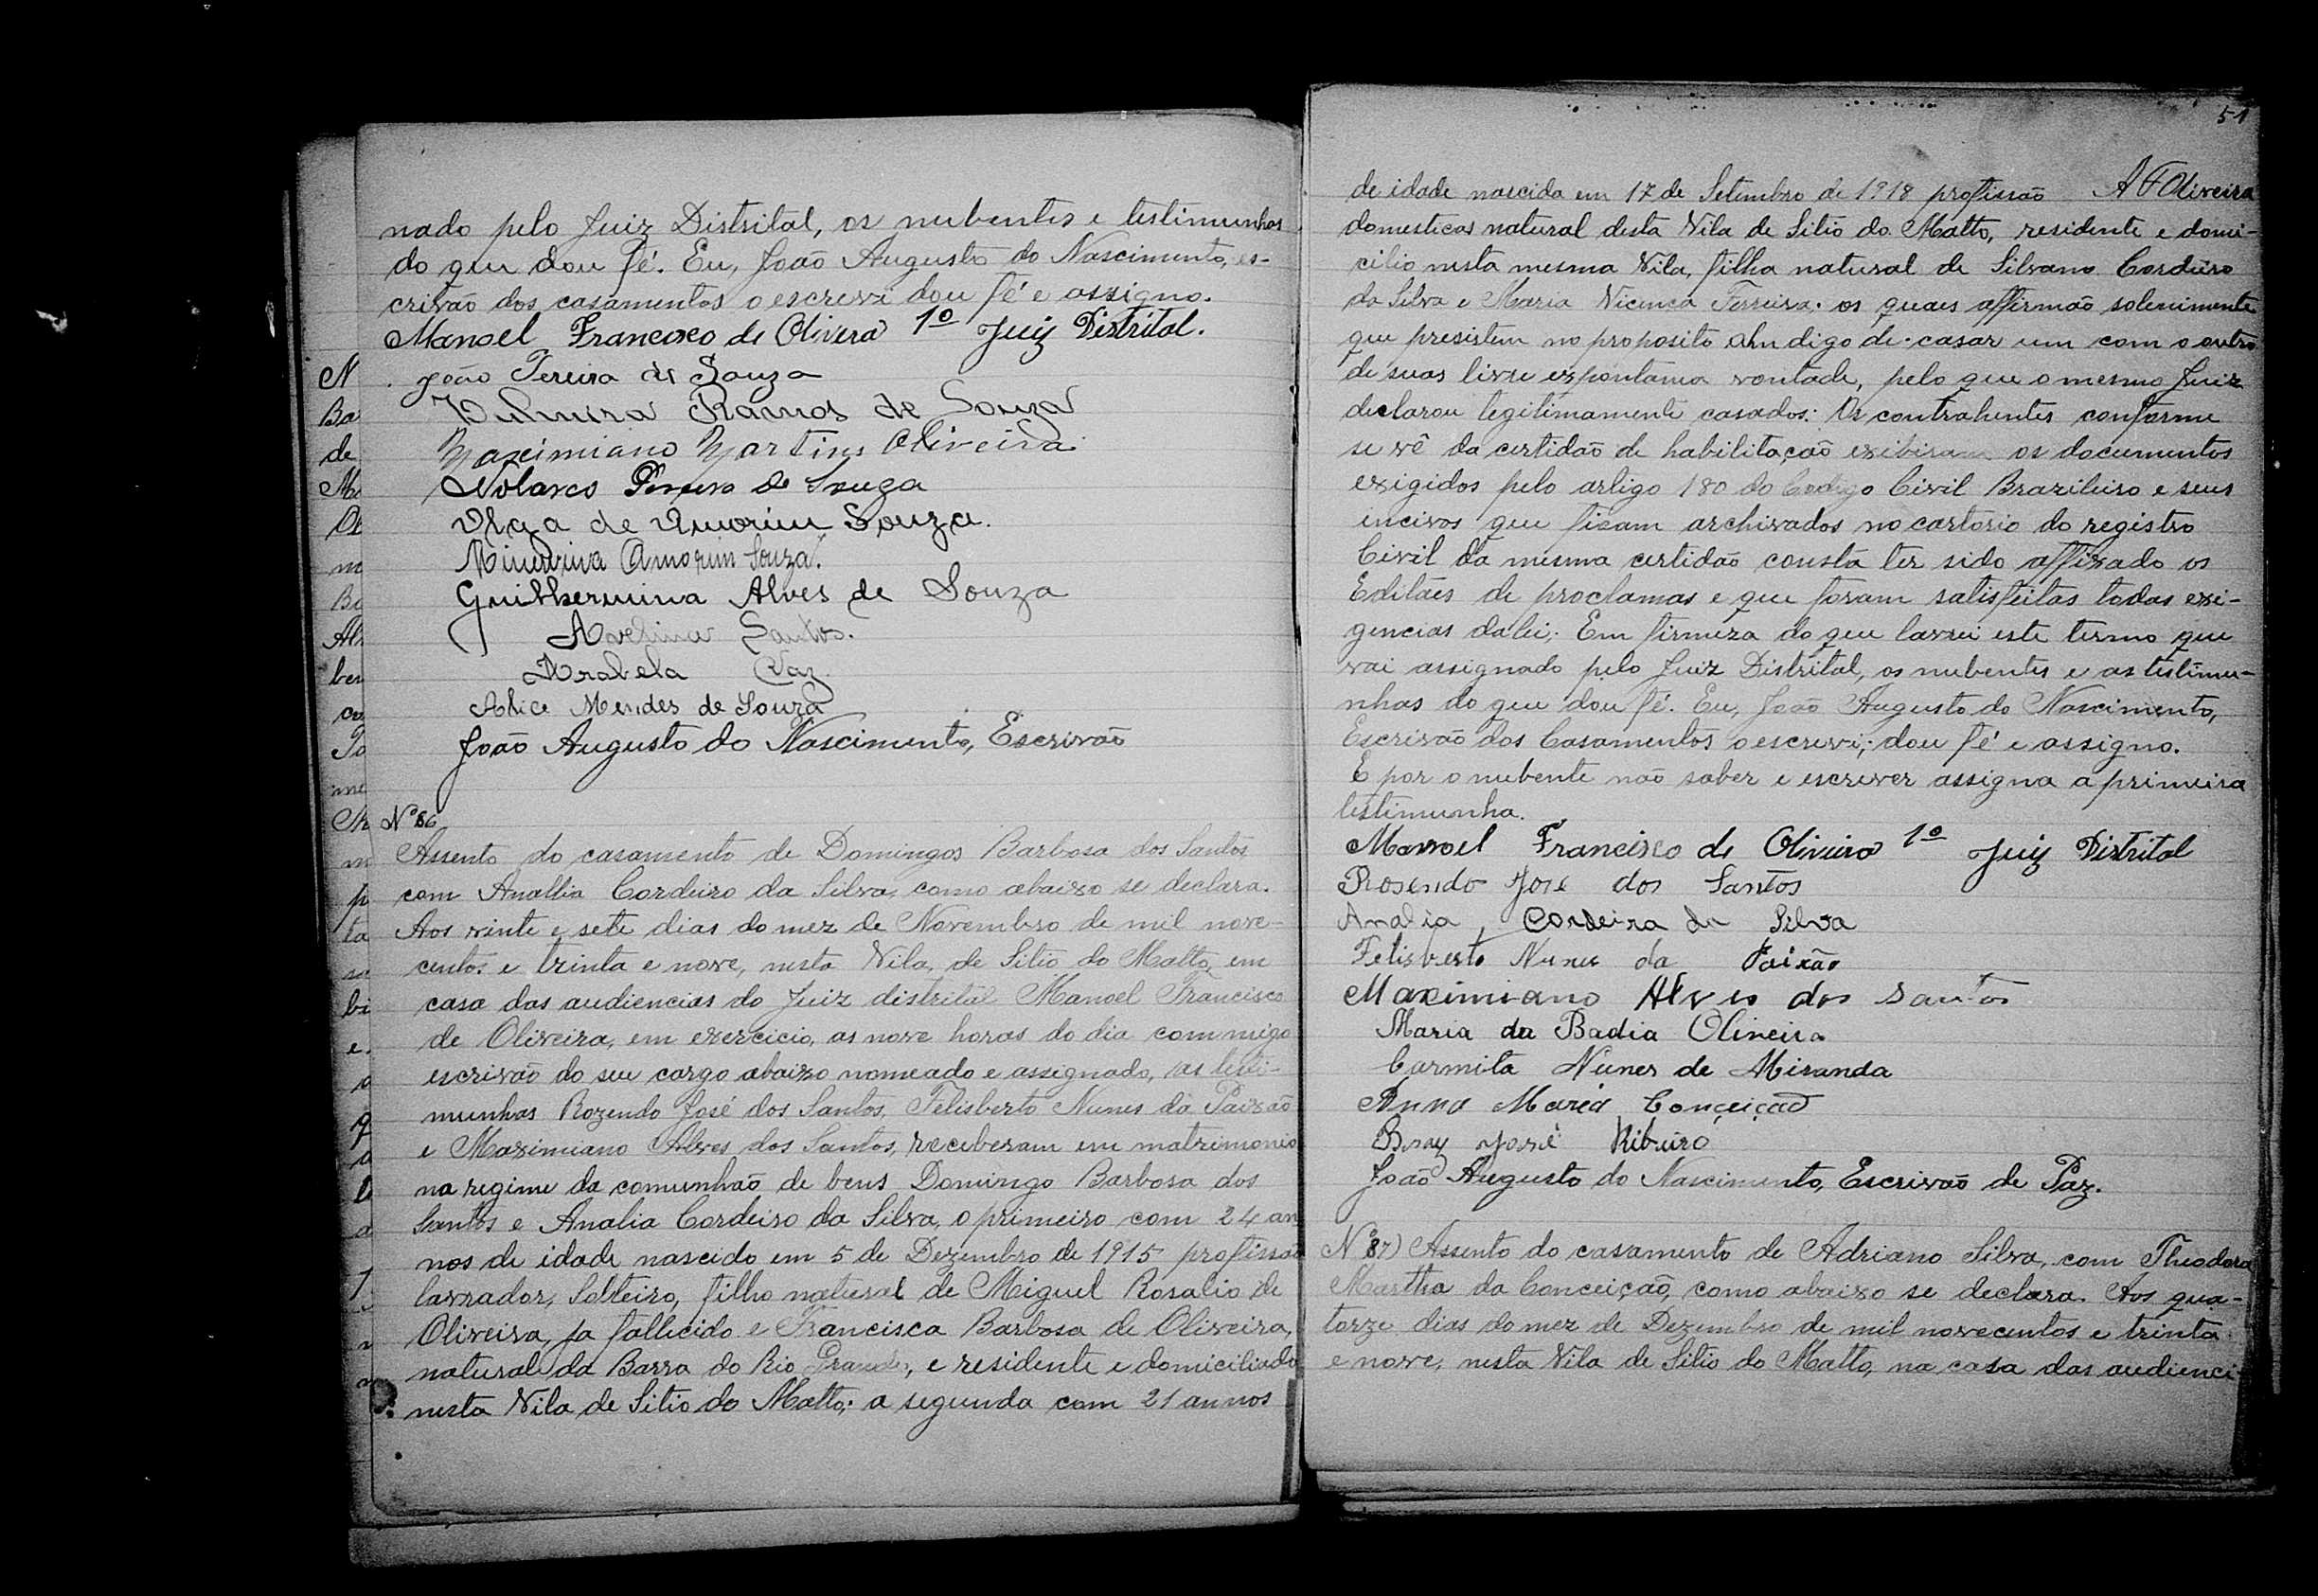 nado pelo Juiz Distrital, os nubentes e testimunhas
do que dou fé. Eu, João Augusto do Nascimento, es-
crivão dos casamentos o escrevi dou fé e assigno.
Manoel Francisco de Olivera 1º Juiz Distrital.
João Pereira de Souza
Ramos de Souza
Maximiano Martins Oliveira
de Souza
Olga de Amorim Souza.
Minervina Amorim Souza.
Guilhermina Alves de Souza
Avelina Santos.
Arabela Vaz.
Alice Mendes de Souza
João Augusto do Nascimento, Escrivão
N
Ba
de
Mo
m
ber
Nº 86
Assento do casamento de Domingos Barbosa dos Santos
com Anallia Cordeiro da Silva, como abaixo se declara.
Aos vinte e sete dias do mez de Novembro de mil nove-
centos e trinta e nove, nesta Vila, de Sitio do Matto, em
casa das audiencias do Juiz distrital Manoel Francisco
de Oliveira, em exercicio, as nove horas do dia commigo
escrivão do seu cargo abaixo nomeado e assignado, as testi-
munhas Rozendo José dos Santos, Felisberto Nunes da Paixão
e Maximiano Alves dos Santos, receberam em matrimonio
na regime da comunhão de bens Domingo Barbosa dos
Santos e Analia Cordeiro da Silva, o primeiro com 24 an
nos de idade nascido em 5 de Dezembro de 1915 profissão
lavrador, Solteiro, filho natural de Miguel Rosalio de
Oliveira, ja fallecido e Francisca Barbosa de Oliveira,
natural da Barra do Rio Grande, e residente e domiciliado
nesta Vila de Sitio do Matto; a segunda com 21 annos
51
de idade nascida em 17 de Setembro de 1918 profissão A F Oliveira
domesticas natural desta Vila de Sitio do Matto, residente e domi-
cilio nesta mesma Vila, filha natural de Silvano Cordeiro
da Silva e Maria Vicença Ferreira; os quaes affirmão solenimente
que presistem no proposito ahn digo de casar um com o outro
de suas livre expontania vontade, pelo que o mesmo Juiz
declarou legitimamente casados: Os contrahentes conforme
se vê da certidão de habilitação exibiram os documentos
exigidos pelo artigo 180 do Codigo Civil Brazileiro e seus
incisos que ficam archivados no cartorio do registro
Civil da mesma certidão consta ter sido affixado os
Editães de proclamas e que foram satisfeitas todas exi-
gencias da lei; Em firmeza do que lavrei este termo que
vai assignado pelo Juiz Distrital, os nubentes e as testimu-
nhas do que dou fé. Eu, João Augusto do Nascimento,
Escrivão dos Casamentos o escrevi; dou fé e assigno.
E por o nubente não saber e escrever assigna a primeira
testimunha.
Manoel Francisco de Oliveira 1º Juiz Distrital
Rosendo José dos Santos
Analia Cordeira da Silva
Felisberto Nunes da Paixão
Maximiano Alves dos Santos
Maria da Badia Oliveira
Carmita Nunes de Miranda
Anna Maria Conceição
Braz José Ribeiro
João Augusto do Nascimento, Escrivão de Paz.
Nº 87) Assento do casamento de Adriano Silva, com Theodora
Martha da Conceição, como abaixo se declara. Aos qua-
torze dias do mez de Dezembro de mil novecentos e trinta
e nove, nesta Vila de Sitio do Matto, na casa das audienci-